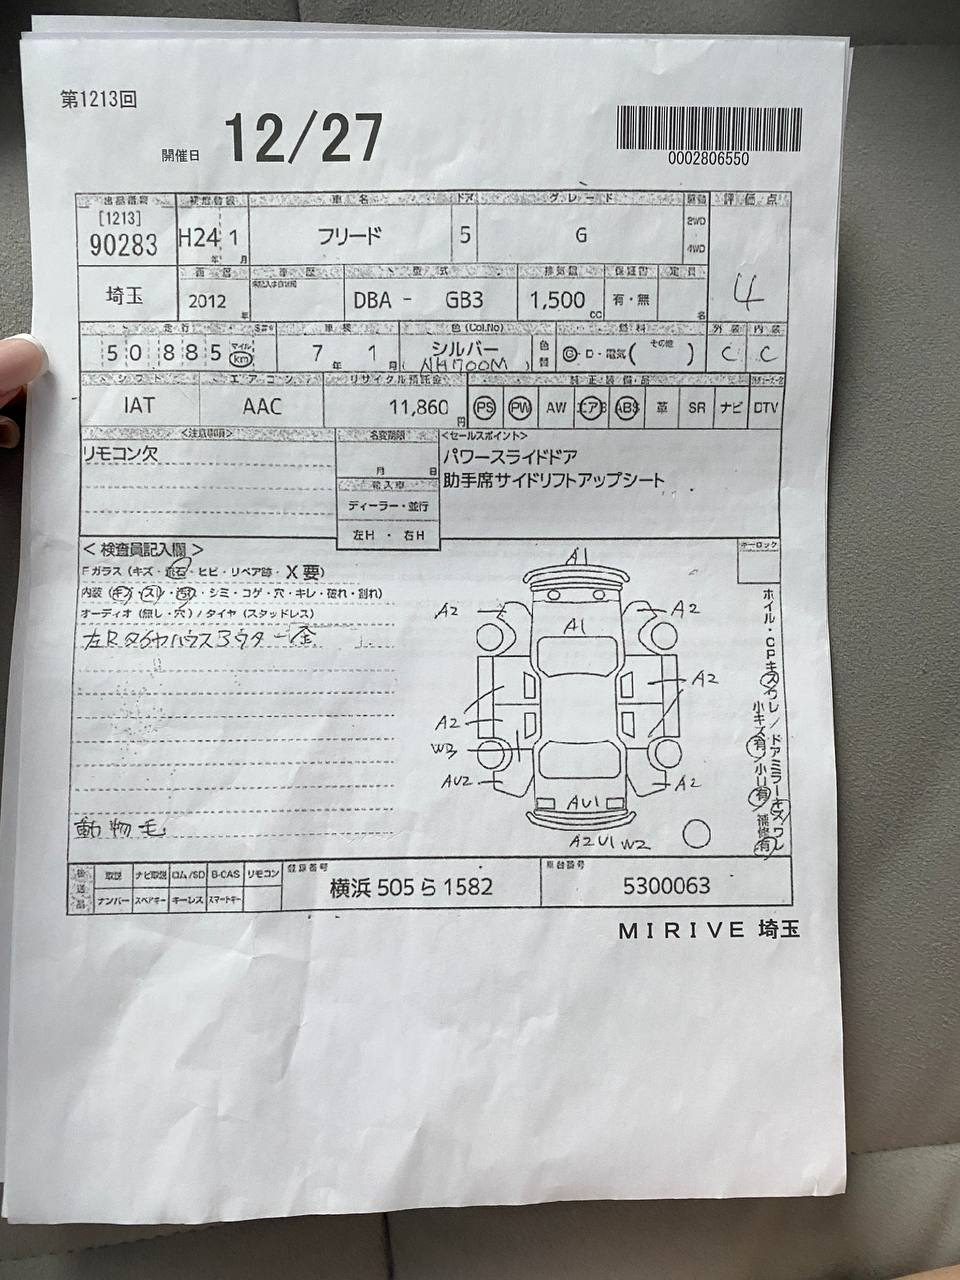 第1213回
開催日 12/27
0002806550
出品番号 初度登録 車名 ドア グレード 駆動 評価点
[1213]
90283 H24 1 フリード 5 G 2WD 4WD
年 月
4
埼玉 西暦 車歴 型式 排気量 保証書 定員
2012 年 DBA - GB3 1,500 cc 有・無 名
走行 車検 色(Col.No) 燃料 外装 内装
50885 マイル km 7年 1月 シルバー (NH700M) 色替 G・D・電気(その他) C C
シフト エアコン リサイクル預託金 純正装備品
IAT AAC 11,860円 PS PW AW エアB ABS 革 SR ナビ DTV
<注意事項> 名変期限 <セールスポイント>
リモコン欠 パワースライドドア
月 日 助手席サイドリフトアップシート
輸入車
ディーラー・並行
左H・右H
<検査員記入欄> キーロック
Fガラス(キズ・飛石・ヒビ・リペア跡・X要)
内装(キズ・スレ・汚れ・シミ・コゲ・穴・キレ・破れ・割れ)
オーディオ(無し・穴)/タイヤ(スタッドレス)
左Rタイヤハウスアウター歪
動物毛
A1
A2 A1 A2
A2 A2
W3
AU2 A2
AU1
A2 U1 W2
ホイル・CPキズワレ/ドアミラーキズワレ
小キズ有 小U有 補修有
後送品 取説 ナビ取説 ロム/SD B-CAS リモコン 登録番号 車台番号
ナンバー スペアキー キーレス スマートキー 横浜 505 ら 1582 5300063
MIRIVE 埼玉